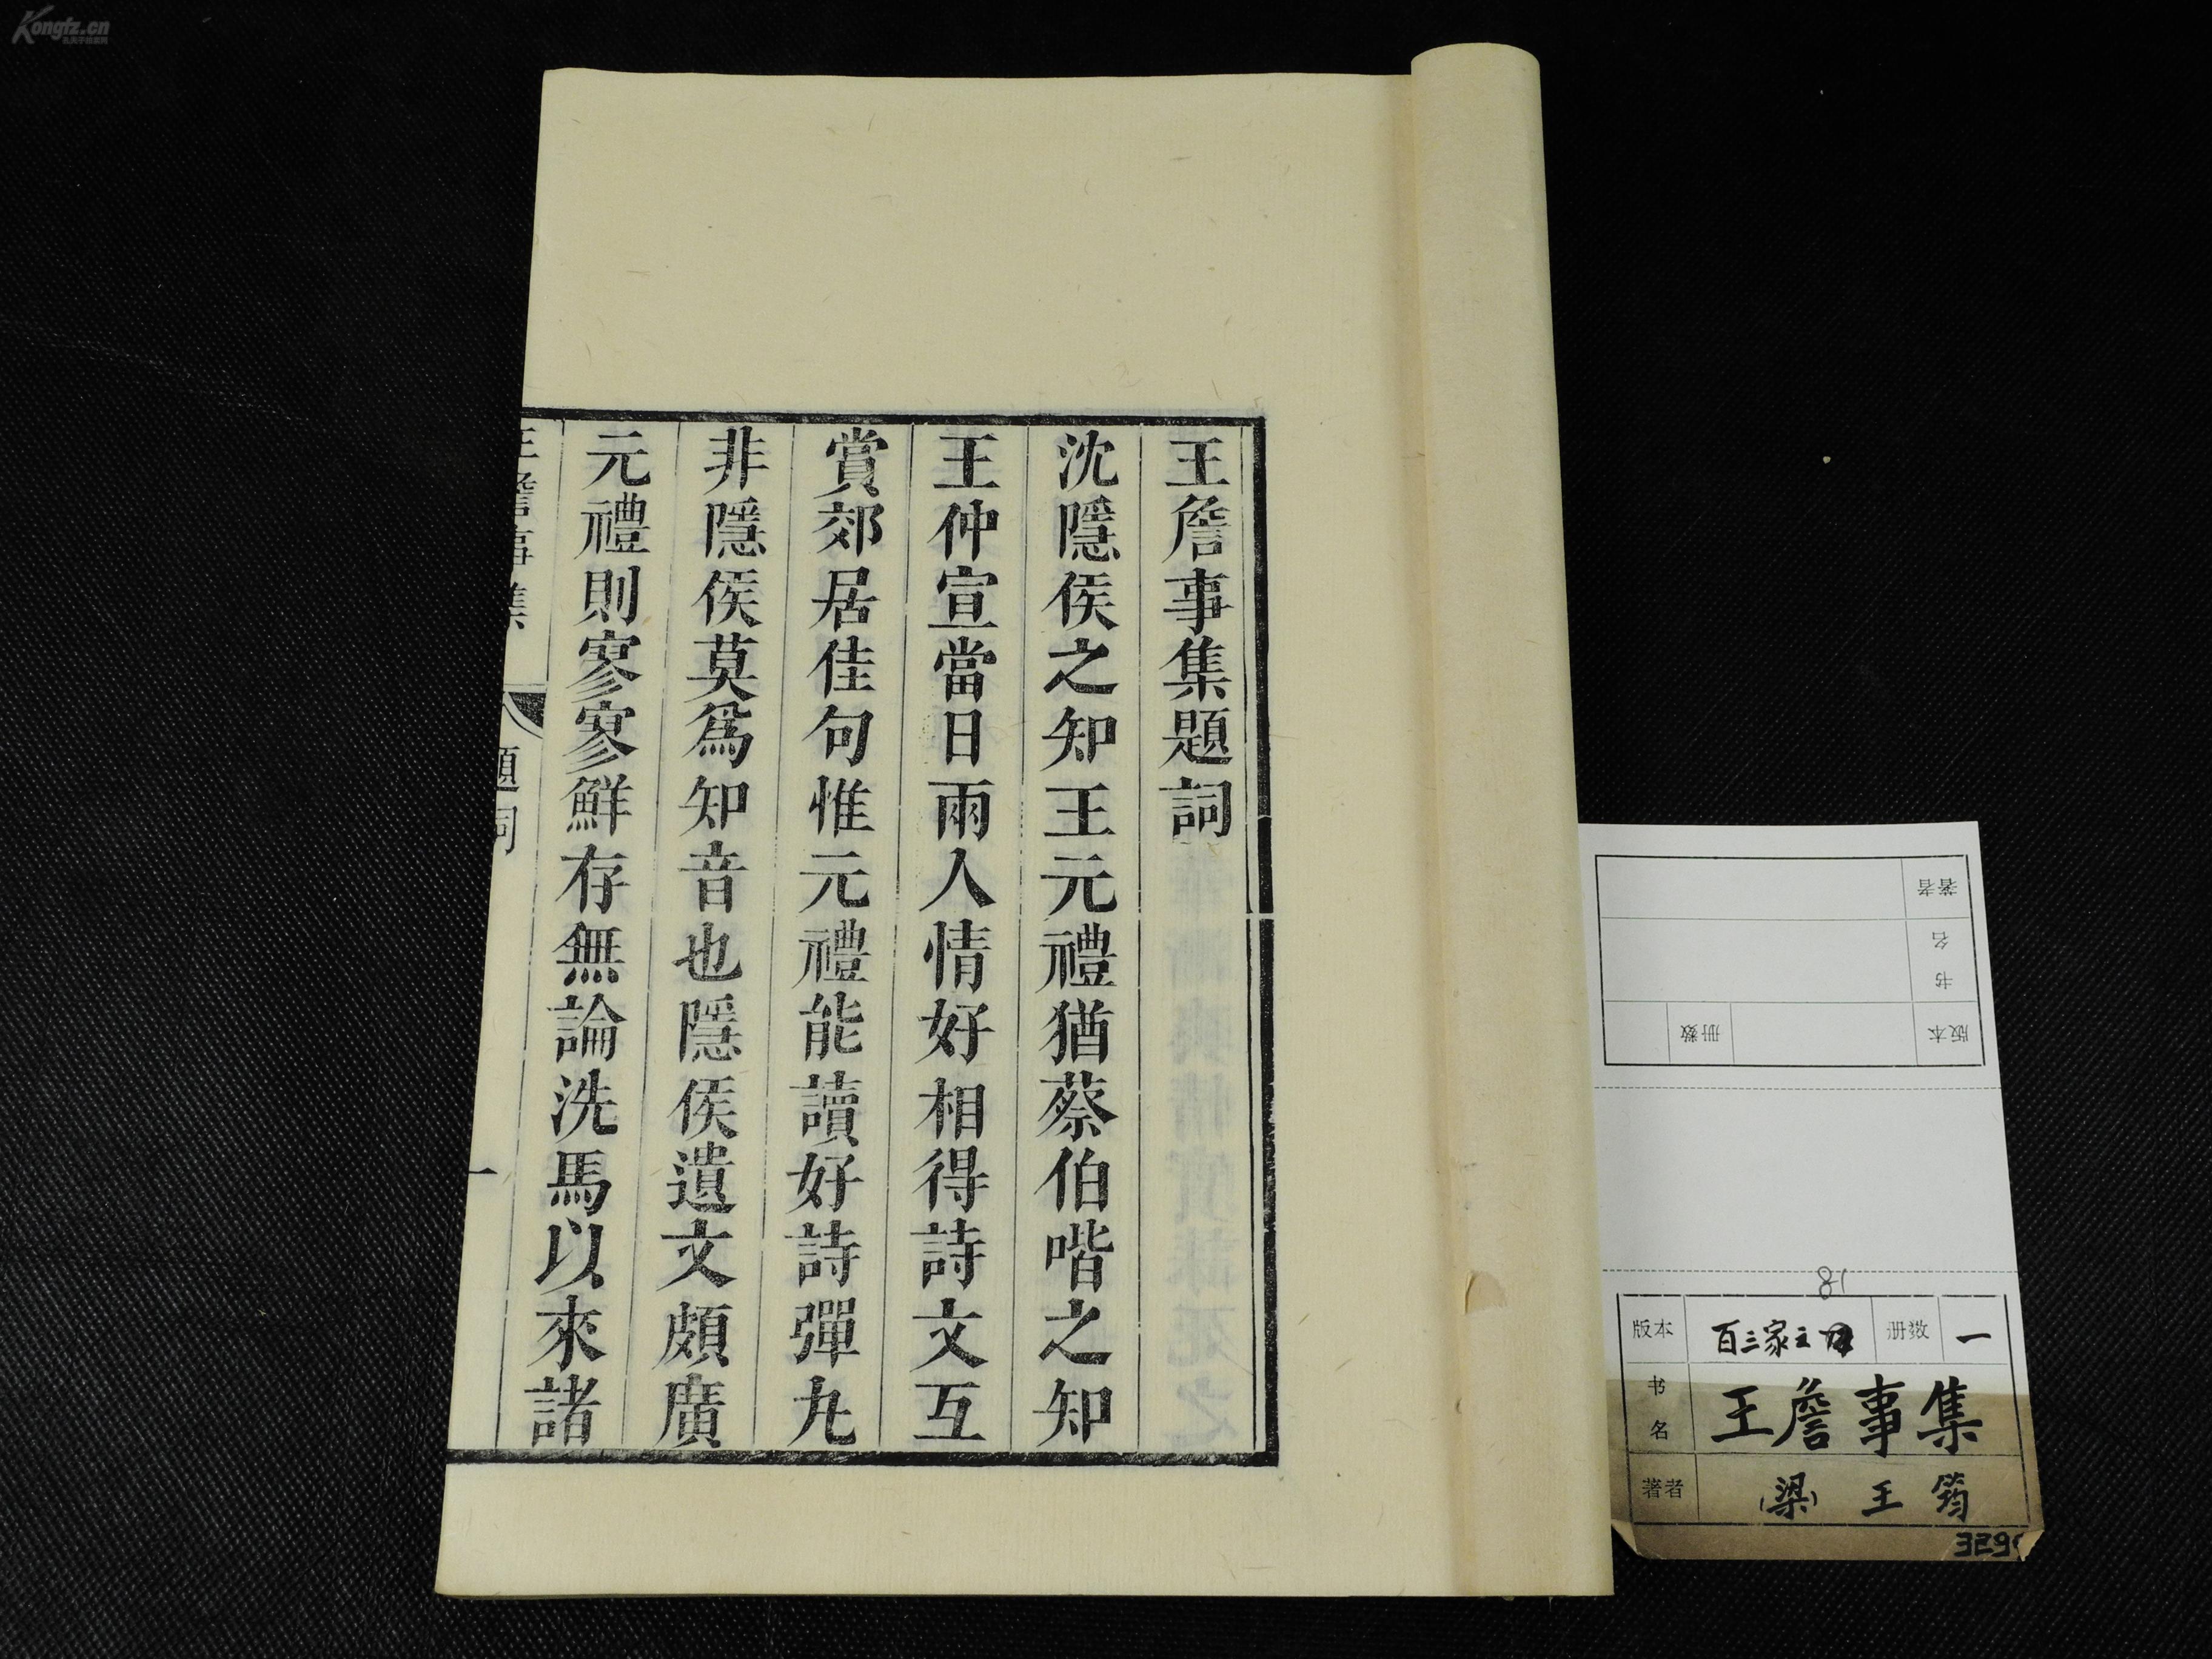 Kongfz.cn
王詹事集題詞
沈隱侯之知王元禮猶蔡伯喈之知
王仲宣當日兩人情好相得詩文互
賞郊居佳句惟元禮能讀好詩彈丸
非隱侯莫爲知音也隱侯遺文頗廣
元禮則寥寥鮮存無論洗馬以來諸
王詹事集
題詞
一
著者
书名
版本
册数
18
版本 百三家之 册数 一
书名 王詹事集
著者 (梁) 王筠
329